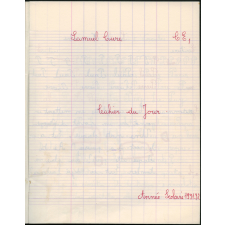 Samuel Cure CE1
Cahier du Jour
Année Scolaire